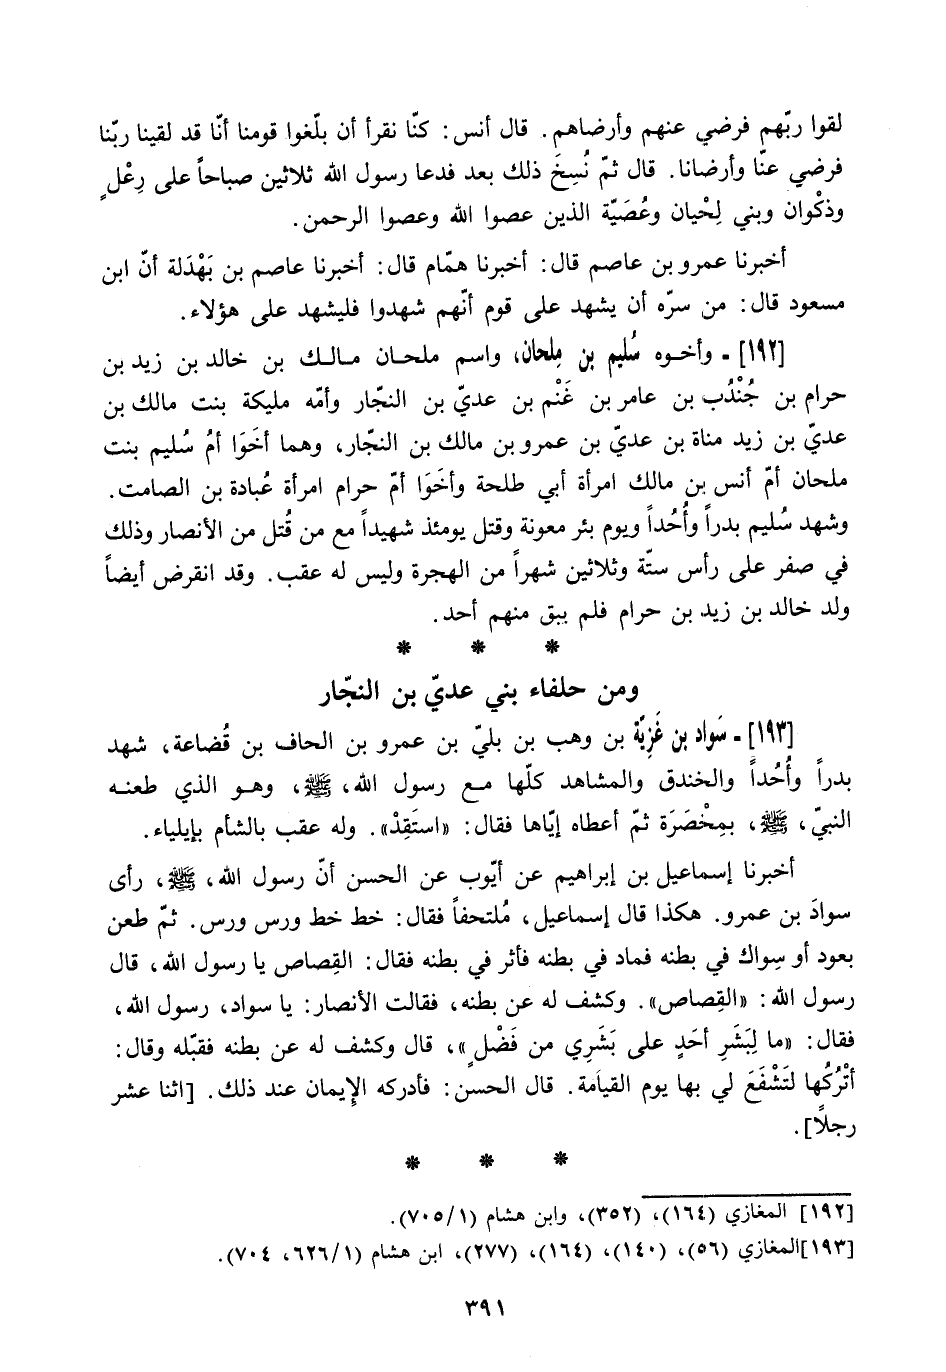 لقوا ربّهم فرضي عنهم وأرضاهم. قال أنس: كنّا نقرأ أن بلّغوا قومنا أنّا قد لقينا ربّنا
فرضي عنّا وأرضانا. قال ثمّ نُسِخَ ذلك بعد فدعا رسول الله ثلاثين صباحاً على رِعْلٍ
وذكْوان وبني لِحْيان وعُصَيّة الذين عصوا الله وعصوا الرحمن.
أخبرنا عمرو بن عاصم قال: أخبرنا همّام قال: أخبرنا عاصم بن بَهْدَلة أنّ ابن
مسعود قال: من سرّه أن يشهد على قوم أنّهم شهدوا فليشهد على هؤلاء.
[١٩٢] ـ وأخوه سُليم بن مِلحان، واسم ملحان مالك بن خالد بن زيد بن
حرام بن جُنْدُب بن عامر بن غَنْم بن عديّ بن النجّار وأمّه مليكة بنت مالك بن
عديّ بن زيد مناة بن عديّ بن عمرو بن مالك بن النجّار، وهما أخَوَا أمُ سُليم بنت
ملحان أمّ أنس بن مالك امرأة أبي طلحة وأخَوَا أمّ حرام امرأة عُبادة بن الصامت.
وشهد سُليم بدراً وأُحُداً ويوم بئر معونة وقتل يومئذ شهيداً مع من قُتل من الأنصار وذلك
في صفر على رأس ستّة وثلاثين شهراً من الهجرة وليس له عقب. وقد انقرض أيضاً
ولد خالد بن زيد بن حرام فلم يبق منهم أحد.
* * *
ومن حلفاء بني عديّ بن النجّار
[١٩٣] ـ سَواد بن غَزِيّة بن وهب بن بليّ بن عمرو بن الحاف بن قُضاعة، شهد
بدراً وأُحُداً والخندق والمشاهد كلّها مع رسول الله، ﷺ، وهو الذي طعنه
النبيّ، ﷺ، بمِخْصَرَة ثمّ أعطاه إيّاها فقال: «استَقِدْ». وله عقب بالشأم بإيلياء.
أخبرنا إسماعيل بن إبراهيم عن أيّوب عن الحسن أنّ رسول الله، ﷺ، رأى
سوادَ بن عمرو. هكذا قال إسماعيل، مُلتحفاً فقال: خط خط ورس ورس. ثمّ طعن
بعود أو سِواك في بطنه فماد في بطنه فأثر في بطنه فقال: القِصاص يا رسول الله، قال
رسول الله: «القِصاص». وكشف له عن بطنه، فقالت الأنصار: يا سواد، رسول الله،
فقال: «ما لِبَشَرٍ أحَدٍ على بَشَرِي من فَضْلٍ»، قال وكشف له عن بطنه فقبّله وقال:
أتْرُكُها لتَشْفَعَ لي بها يوم القيامة. قال الحسن: فأدركه الإيمان عند ذلك. [اثنا عشر
رجلاً].
* * *
[١٩٢] المغازي (١٦٤)، (٣٥٢)، وابن هشام (٧٠٥/١).
[١٩٣] المغازي (٥٦)، (١٤٠)، (١٦٤)، (٢٧٧)، ابن هشام (٦٢٦/١، ٧٠٤).
٣٩١